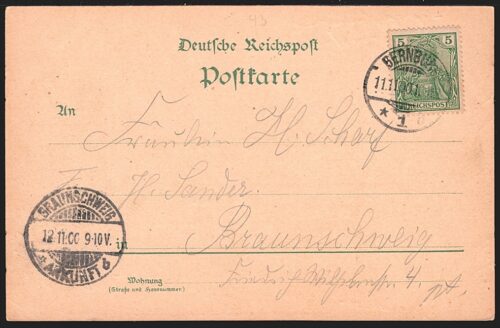 93
Deutsche Reichspost
Postkarte
5 5
REICHSPOST
BERNBURG
11.11.00
* 1
An
Fräulein H. Scharf
H. Sander.
BRAUNSCHWEIG
12 11.00 9-10V.
ANKUNFT 6
in Braunschweig
Wohnung
(Straße und Hausnummer)
Friedrich Wilhelmstr. 4, pt.